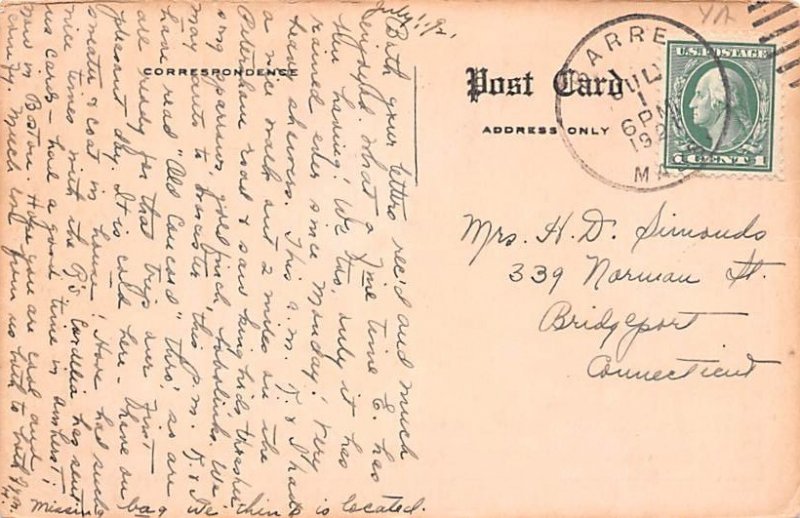 July 1, '21
Both your letters rec'd and much
enjoyed. What a fine time E. has
been having! We too, only it has
rained ever since Monday! Very
heavy showers. This a.m. F. & I had
a nice walk out 2 miles on the
Petersham road & saw kingbirds, thrasher,
song sparrows, goldfinch, bobolinks. We
may auto to Worcester this p.m. F. & I
have read "Old Concord" thro', so are
all ready for that trip our first
pleasant day. It is cold here - I have on
sweater & coat in house! Have had such
nice times with the P's. Cordelia has sent
us cards - had a good time in Amherst;
now in Boston. Hope you are cool and
comfy. Much love from us both to both of you
Missing bag is located.
CORRESPONDENCE
Post Card
ADDRESS ONLY
BARRE
JUL
1
6 PM
192
MA
U.S. POSTAGE
1 CENT 1
Mrs. H. D. Simonds
339 Norman St.
Bridgeport
Connecticut